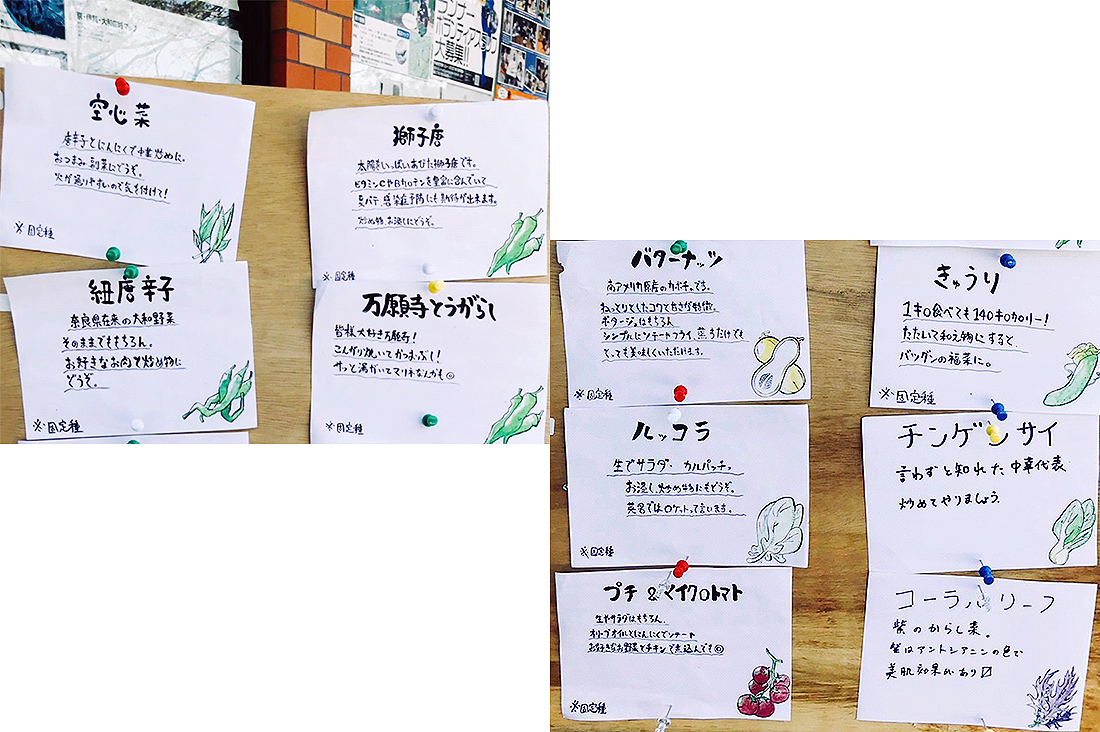 京・伊賀・大和広域マップ
ランナー
ボランティアスタッフ
大募集!!
空心菜
唐辛子とにんにくで中華炒めに。
おつまみ、副菜にどうぞ。
火が通りやすいので気を付けて!
※固定種
獅子唐
太陽をいっぱいあびた獅子唐です。
ビタミンCやBカロテンを豊富に含んでいて
夏バテ、感染症予防にも期待が出来ます。
炒め物、お浸しにどうぞ。
※固定種
紐唐辛子
奈良県在来の大和野菜
そのままでももちろん。
お好きなお肉で炒め物に
どうぞ。
※固定種
万願寺とうがらし
皆様大好き万願寺!
こんがり焼いてかつおぶし!
サッと湯がいてマリネなんかも☺
※固定種
バターナッツ
南アメリカ原産のカボチャです。
ねっとりとしたコクと甘さが特徴。
ポタージュはもちろん
シンプルにソテーやフライ、蒸すだけでも
とっても美味しくいただけます。
※固定種
きゅうり
1キロ食べても140キロカロリー!
たたいて和え物にすると、
バツグンの福菜に。
※固定種
ルッコラ
生でサラダ・カルパッチョ
お浸し、炒め物にもどうぞ。
英名ではロケットって言います。
※固定種
チンゲンサイ
言わずと知れた中華代表
炒めてやりましょう。
プチ&マイクロトマト
生やサラダはもちろん。
オリーブオイルとにんにくでソテーや
お好きなお野菜とチキンで煮込んでも☺
※固定種
コーラルリーフ
紫のからし菜。
紫はアントシアニンの色で
美肌効果があり〼